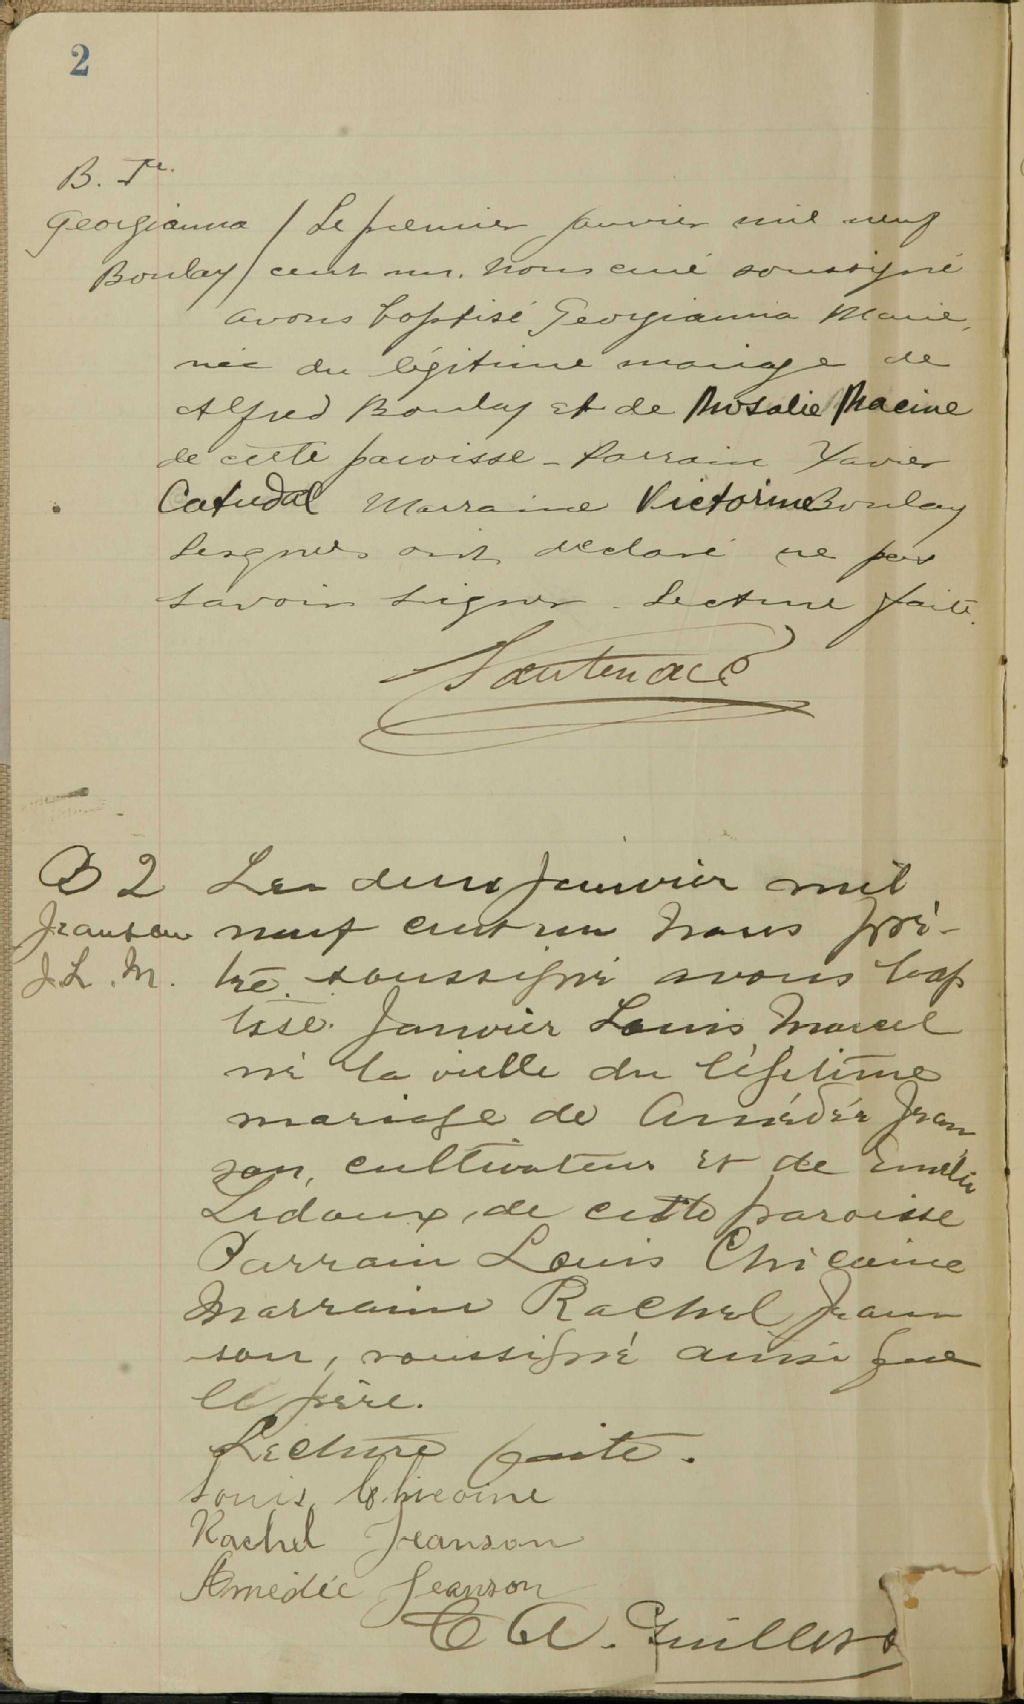 2
B. 1er.
Georgianna / Le premier Janvier mil neuf
Boulay / cent un. Nous curé soussigné
avons baptisé Georgianna Marie,
née du légitime mariage de
Alfred Boulay et de Rosalie Racine
de cette paroisse - Parrain Xavier
Catudal Marraine Victorine Boulay
Lesquels ont déclaré ne pas
savoir signer. Lecture faite.
B 2 Le deux janvier mil
Jeanson neuf cent un Nous prê-
J. L. M. tre soussigné avons bap
tisé Janvier Louis Marcel
né la veille du légitime
mariage de Amédée Jean
son, cultivateur et de Emélie
Ledoux, de cette paroisse
Parrain Louis Chicoine
Marraine Rachel Jean
son, soussigné ainsi que
le père.
Lecture faite.
Louis Chicoine
Rachel Jeanson
Amédée Jeanson
C A. Guillet